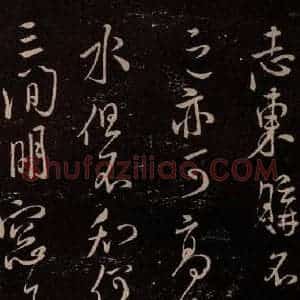 志東不
之亦可高
水但不知何
三間明窓
shufaziliao.com